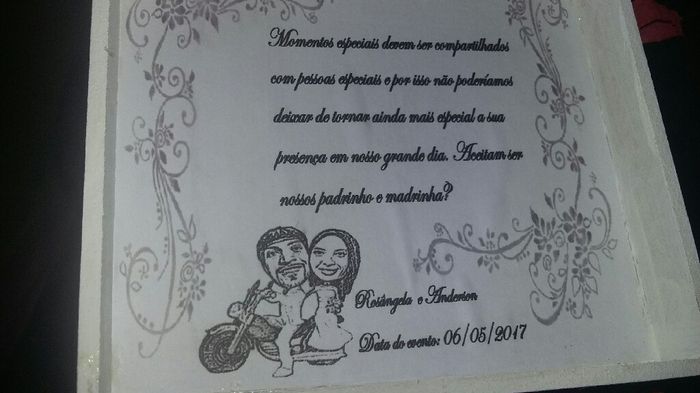 Momentos especiais devem ser compartilhados
com pessoas especiais e por isso não poderíamos
deixar de tornar ainda mais especial a sua
presença em nosso grande dia. Aceitam ser
nossos padrinho e madrinha?
Rosângela e Anderson
Data do evento: 06/05/2017